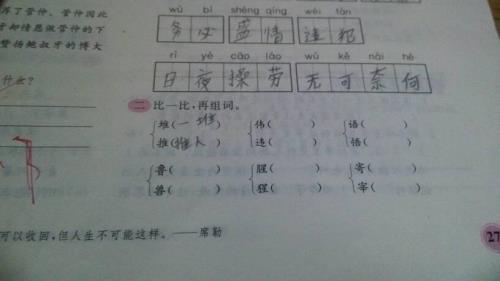 了管仲。管仲因此
却情愿做管仲的下
赞扬鲍叔牙的博大
什么?
wù bì shèng qíng wéi fàn
务必 盛情 违犯
rì yè cāo láo wú kě nài hé
日夜操劳 无可奈何
二 比一比,再组词。
堆(一堆) 伟( ) 语( )
推(推人) 违( ) 悟( )
鲁( ) 腥( ) 寄( )
兽( ) 猩( ) 宰( )
可以收回,但人生不可能这样。——席勒
27